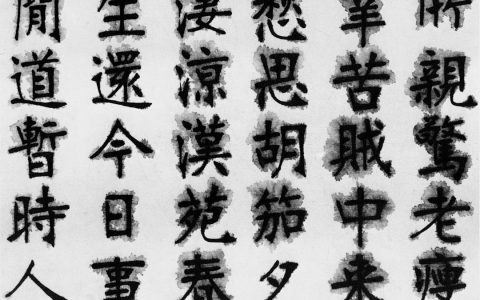 所親驚老瘦
辛苦賊中来
愁思胡笳夕
凄涼漢苑春
生還今日事
閒道暫時人